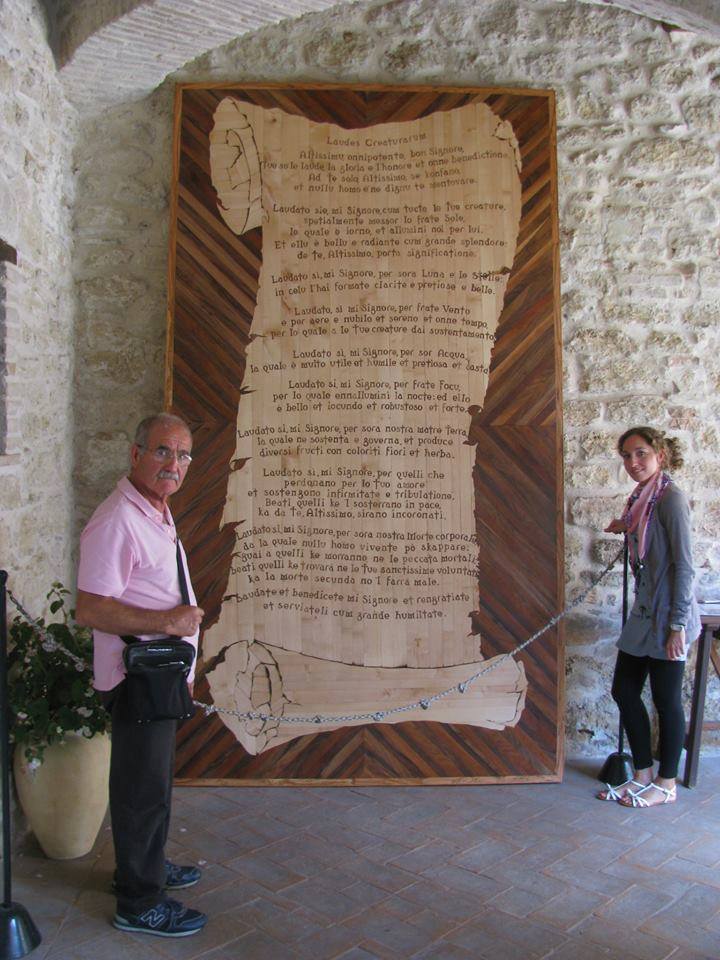 Laudes Creaturarum
Altissimu onnipotente, bon Signore,
Tue so le laude la gloria e l'honore et onne benedictione.
Ad te solo Altissimo, se konfano
et nullu homo ene dignu te mentovare.
Laudato sie, mi Signore, cum tucte le tue creature,
spetialmente messor lo frate Sole,
lo quale è iorno, et allumini noi per lui.
Et ellu è bellu e radiante cum grande splendore:
de te, Altissimo, porta significatione.
Laudato si, mi Signore, per sora Luna e le Stelle:
in celu l'hai formate clarite e pretiose e belle.
Laudato, si mi Signore, per frate Vento
e per aere e nubilo et sereno et onne tempo,
per lo quale a le tue creature dai sustentamento.
Laudato si, mi Signore, per sor Acqua,
la quale è multo utile et humile et pretiosa et casta.
Laudato si, mi Signore, per frate Focu,
per lo quale ennallumini la nocte: ed ello
è bello et iocundo et robustoso et forte.
Laudato si, mi Signore, per sora nostra matre terra,
la quale ne sostenta e governa, et produce
diversi fructi con coloriti fiori et herba.
Laudato si, mi Signore, per quelli che
perdonano per lo tuo amore
et sostengono infirmitate e tribulatione,
Beati quelli ke 'l sosterrano in pace,
ka da Te, Altissimo, sirano incoronati.
Laudato si, mi Signore, per sora nostra Morte corporale
da la quale nullu homo vivente pò skappare:
guai a quelli ke morranno ne le peccata mortali
beati quelli ke trovarà ne le tue sanctissime voluntati
ka la morte secunda no 'l farrà male.
Laudate et benedicete mi Signore et rengratiate
et serviateli cum grande humiltate.